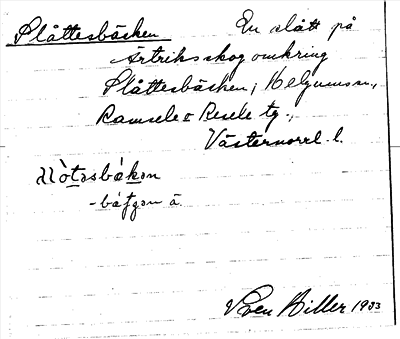 Slåttesbäcken
En slått på
Ärtriksskog omkring
Slåttesbäcken; Helgums sn,
Ramsele o Resele tg.,
Västernorrl. l.
-båfgən ä
Sven Hiller 1933